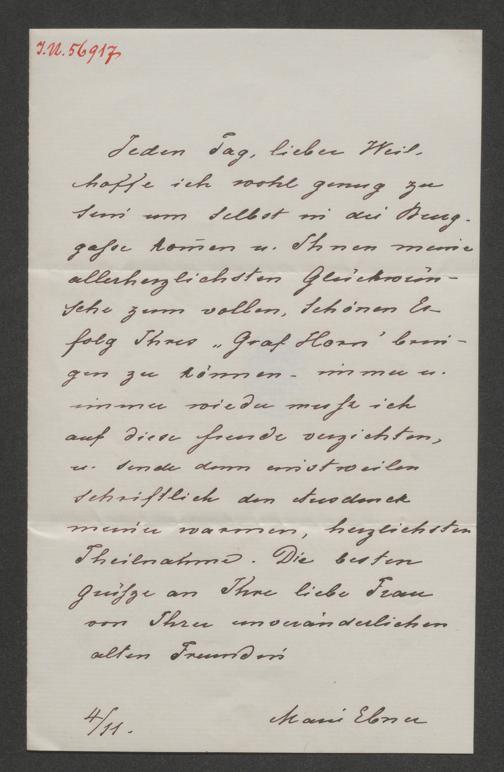 J.N. 56917
Jeden Tag, lieber Weil,
hoffe ich wohl genug zu
sein um selbst in die Burg-
gasse kom̄en u. Ihnen meine
allerherzlichsten Glückwün-
sche zum vollen, schönen Er-
folg Ihres „Graf Horn" brin-
gen zu können – immer u.
immer wieder muß ich
auf diese Freude verzichten,
u. sende denn einstweilen
schriftlich den Ausdruck
meiner warmen, herzlichsten
Theilnahme. Die besten
Grüße an Ihre liebe Frau
von Ihrer unveränderlichen
alten Freundin
4/11.
Marie Ebner